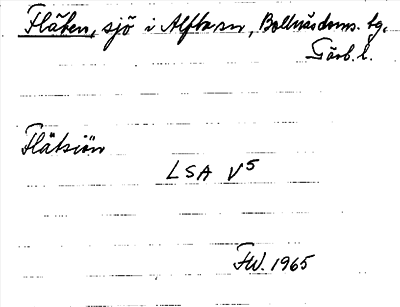 Fläken, sjö i Alfta sn, Bollnäs doms. tg,
Gävb. l.
Fläksjön
LSA V5
FW. 1965